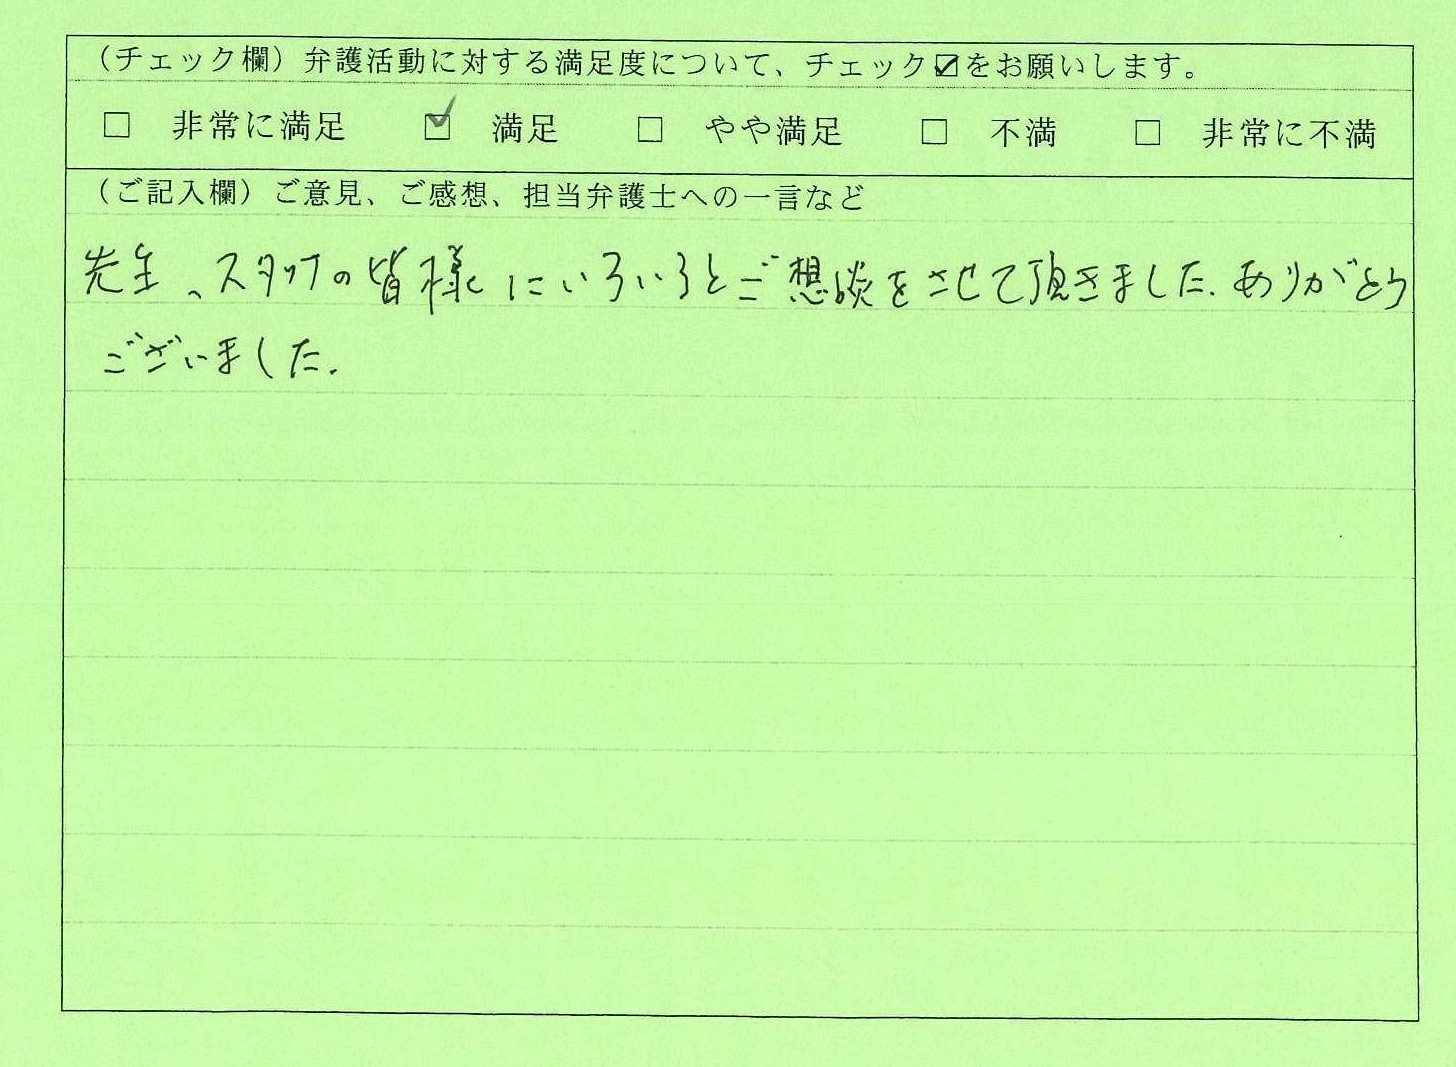 （チェック欄）弁護活動に対する満足度について、チェック☑をお願いします。
□ 非常に満足 ☑ 満足 □ やや満足 □ 不満 □ 非常に不満
（ご記入欄）ご意見、ご感想、担当弁護士への一言など
先生、スタッフの皆様にいろいろとご想談をさせて頂きました。ありがとう
ございました。